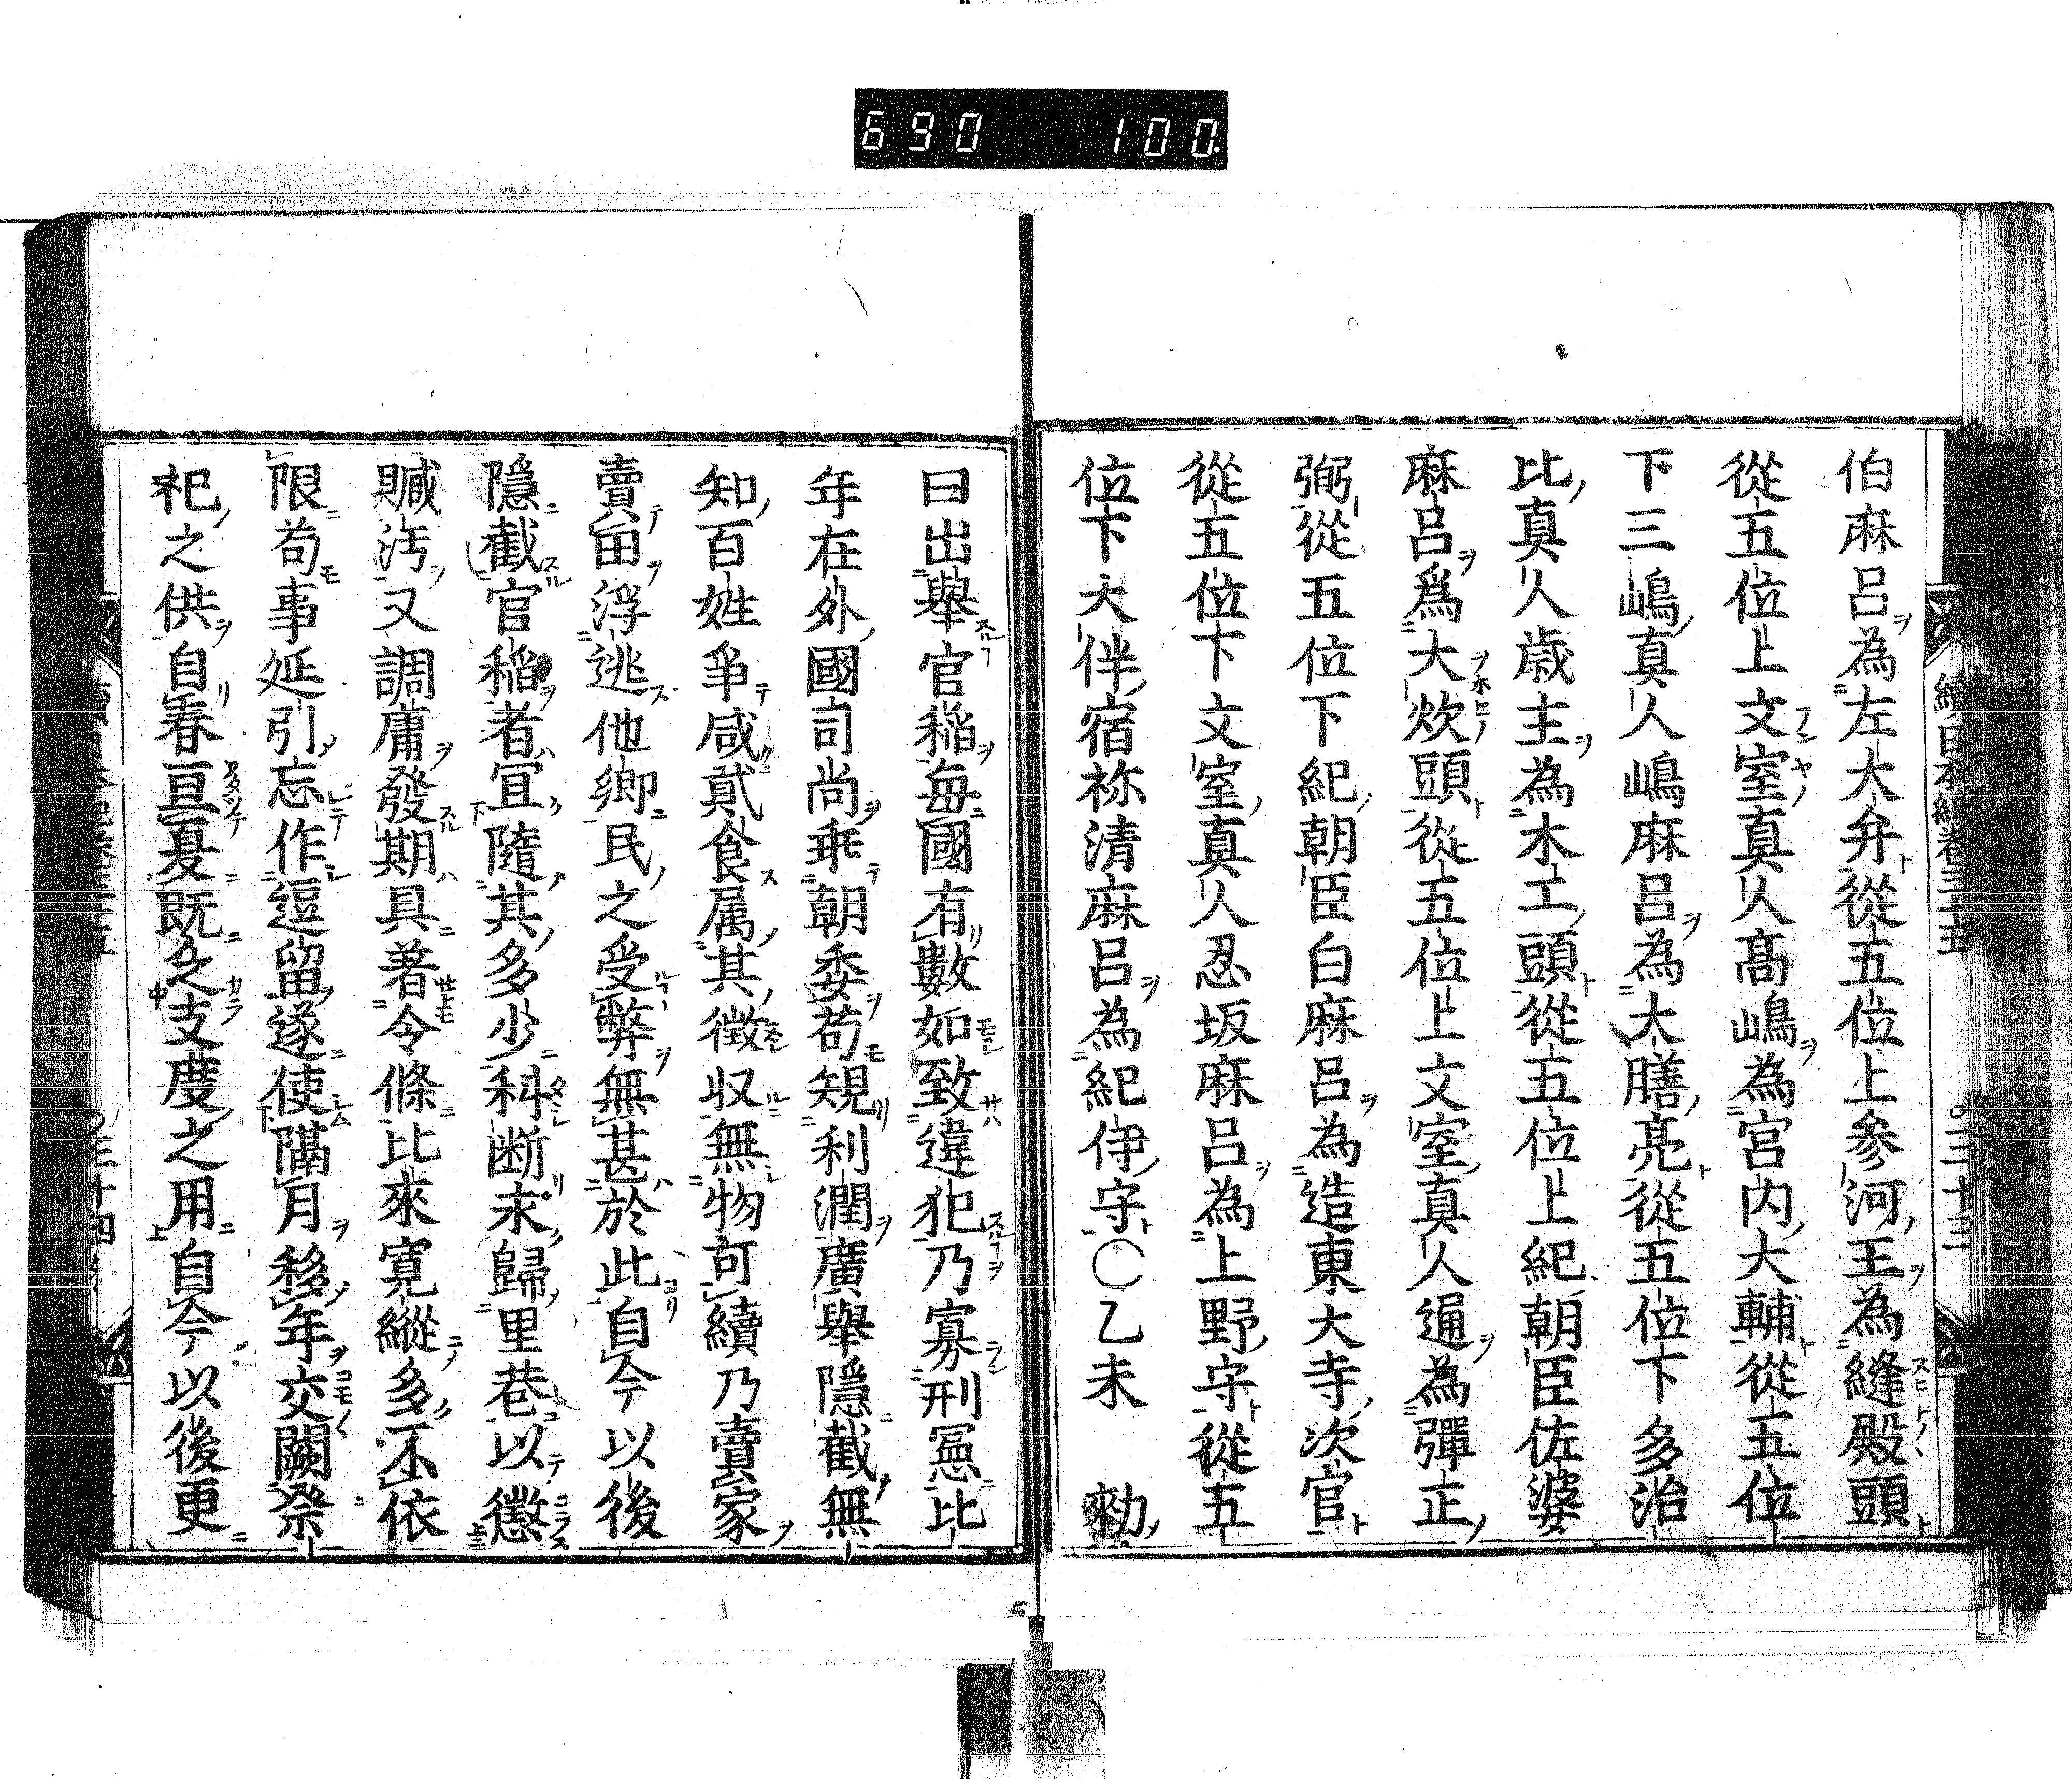 690 100.
伯麻呂為左大弁從五位上参河王為縫殿頭
從五位上文室真人髙嶋為宮内大輔從五位
下三嶋真人嶋麻呂為大膳亮從五位下多治
比真人歳主為木工頭從五位上紀朝臣佐婆
麻呂爲大炊頭從五位上文室真人逥為彈正
弼從五位下紀朝臣白麻呂為造東大寺次官
從五位下文室真人忍坂麻呂為上野守從五
位下大伴宿祢清麻呂為紀伊守〇乙未 勑
曰出舉官稲毎國有數如致違犯乃寡刑憲比
年在外國司尚乖朝委苟規利潤廣舉隱截無
知百姓爭咸貣食属其徴収無物可續乃賣家
賣田浮逃他鄉民之受弊無甚於此自今以後
隱截官稲者宜隨其多少科断永歸里巷以懲
贓汚又調庸發期具著令條比來寛縱多不依
限苟事延引忘作逗留遂使隔月移年交闕祭
祀之供自春亘夏既乏支度之用自今以後更